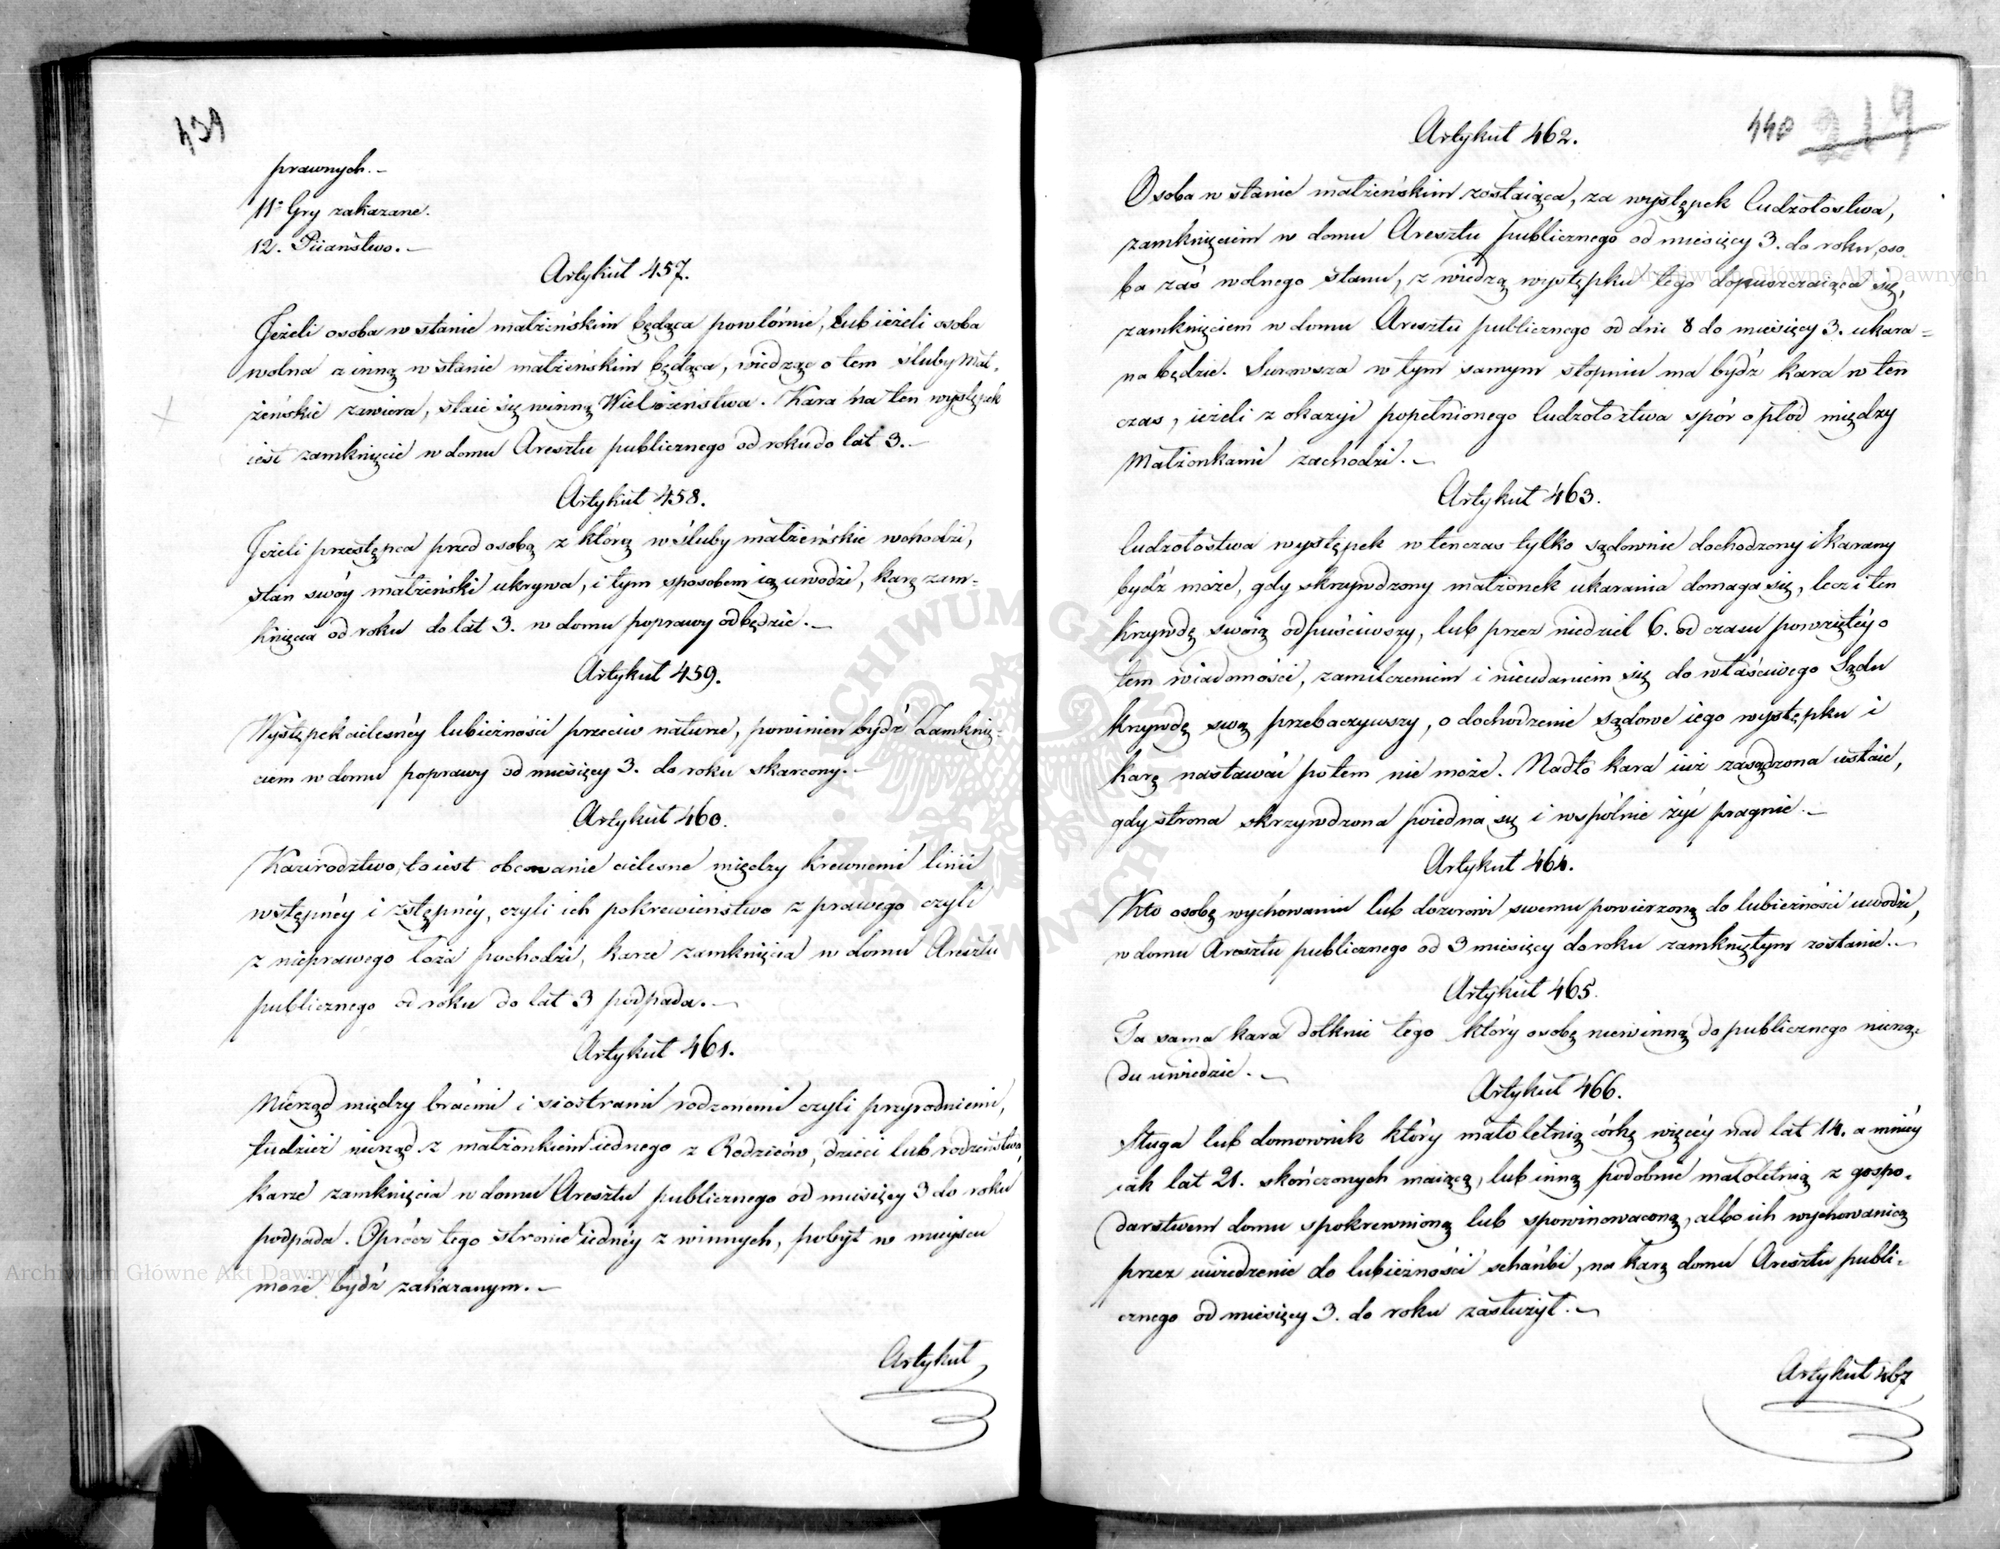 439
prawnych.–
11. Gry zakazane.
12. Piiaństwo.–
Artykuł 457.
Jeżeli osoba w stanie małżeńskim będąca powtórnie, lub ieżeli osoba
wolna z inną w stanie małżeńskim będąca, wiedząc o tem śluby Mał-
żeńskie zawiera, staie się winną Wielożeństwa. Kara na ten występek
iest zamknięcie w domu Aresztu publicznego od roku do lat 3.–
Artykuł 458.
Jeżeli przestępca przed osobą z którą w śluby małżeńskie wchodzi,
stan swóy małżeński ukrywa, i tym sposobem ią uwodzi, karę zam-
knięcia od roku do lat 3. w domu poprawy odbędzie.–
Artykuł 459.
Występek cielesnéy lubieżności przeciw naturze, powinien bydź Zamknię-
ciem w domu poprawy od miesięcy 3. do roku skarcony.–
Artykuł 460.
Kazirodztwo, to iest obcowanie cielesne między krewnemi linii
wstępnéy i zstępnéy, czyli ich pokrewieństwo z prawego czyli
z nieprawego łoża pochodzi, karze zamknięcia w domu Aresztu
publicznego od roku do lat 3 podpada.–
Artykuł 461.
Nierząd między braćmi i siostrami rodzonemi czyli przyrodniemi,
tudzież nierząd z małżonkiem iednego z Rodziców, dzieci lub rodzeństwa,
karze zamknięcia w domu Aresztu publicznego od miesięcy 3 do roku
podpada. Oprócz tego stronie iednéy z winnych, pobyt w mieyscu
może bydź zakazanym.–
Artykuł
440 219
Artykuł 462.
Osoba w stanie małżeńskim zostaiąca, za występek Cudzołostwa,
zamknięciem w domu Aresztu publicznego od miesięcy 3. do roku, oso-
ba zaś wolnego stanu, z wiedzą występku tego dopuszczaiąca się,
zamknięciem w domu Aresztu publicznego od dni 8 do miesięcy 3. ukara-
na będzie. Surowsza w tym samym stopniu ma bydź kara w ten
czas, ieżeli z okazyi popełnionego Cudzołoztwa spór o płód między
Małżonkami zachodzi.–
Artykuł 463.
Cudzołostwa występek w tenczas tylko sądownie dochodzony i karany
bydź może, gdy skrzywdzony małżonek ukarania domaga się, lecz i ten
krzywdę swoią odpuściwszy, lub przez niedziel 6. od czasu powziętéy o
tem wiadomości, zamilczeniem i nieudaniem się do właściwego Sądu
krzywdę swą przebaczywszy, o dochodzenie sądowe iego występku i
karę nastawać potem nie może. Nadto kara iuż zasądzona ustaie,
gdy strona skrzywdzona poiedna się i wspólnie żyć pragnie.–
Artykuł 464.
Kto osobę wychowaniu lub dozorowi swemu powierzoną do lubieżności uwodzi,
w domu Aresztu publicznego od 3 miesięcy do roku zamkniętym zostanie.–
Artykuł 465.
Ta sama kara dotknie tego który osobę niewinną do publicznego nierzą-
du uwiedzie.–
Artykuł 466.
Sługa lub domownik który małoletnią córkę więcéy nad lat 14. a mniéy
iak lat 21. skończonych maiącą, lub inną podobnie małoletnią z gospo-
darstwem domu spokrewnioną lub spowinowaconą, albo ich wychowanicę
przez uwiedzenie do lubieżności schańbi, na karę domu Aresztu publi-
cznego od miesięcy 3. do roku zasłużył.–
Artykuł 467
Archiwum Główne Akt Dawnych
Archiwum Główne Akt Dawnych
ARCHIWUM GŁÓWNE AKT DAWNYCH